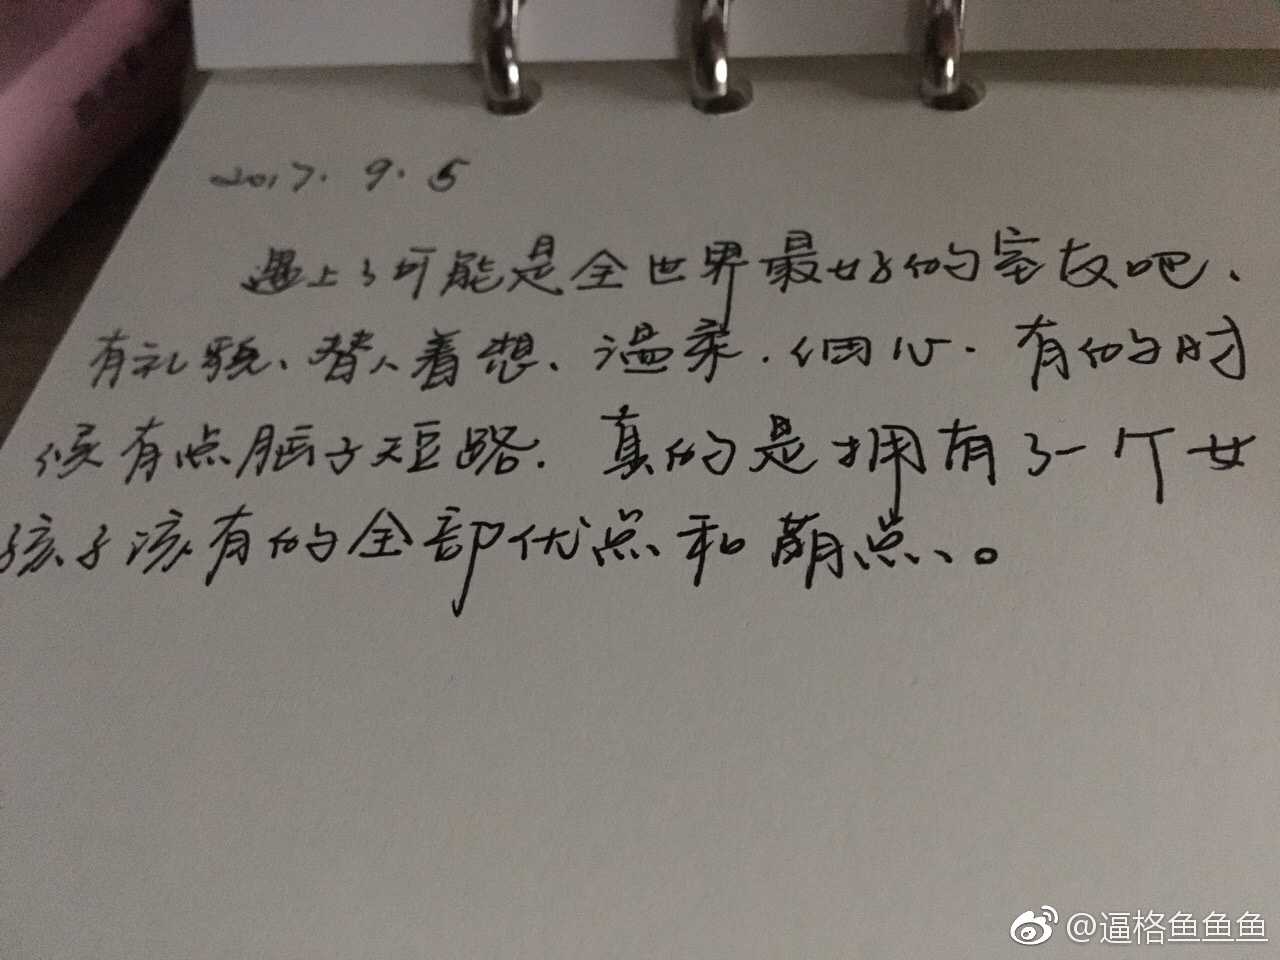 2017.9.5
遇上了可能是全世界最好的室友吧、
有礼貌、替人着想、温柔、细心、有的时
候有点脑子短路. 真的是拥有了一个女
孩子该有的全部优点和萌点、。
@逼格鱼鱼鱼